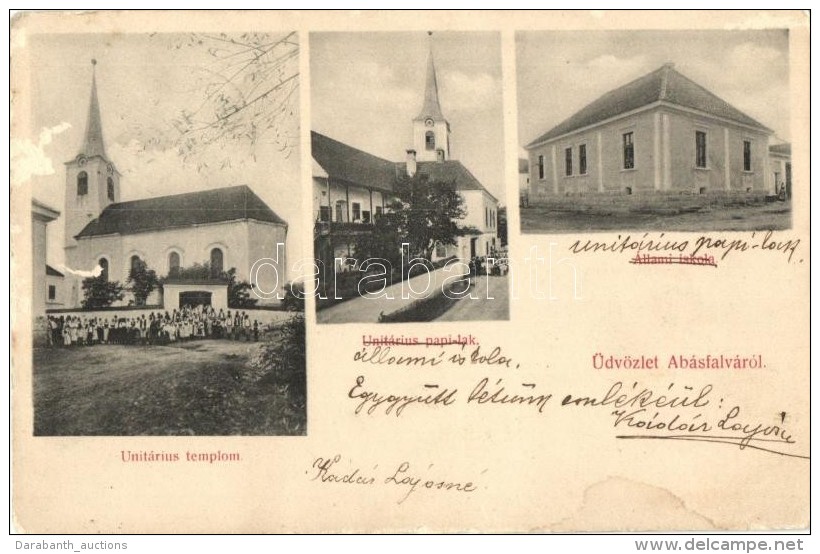 darabanth.com
unitárius papi-lak
Állami iskola
Unitárius papi-lak.
állami iskola.
Üdvözlet Abásfalváról.
Együtt létünk emlékéül:
Kádár Lajos
Unitárius templom.
Kádár Lajosné
Darabanth_auctions
http://www.delcampe.net